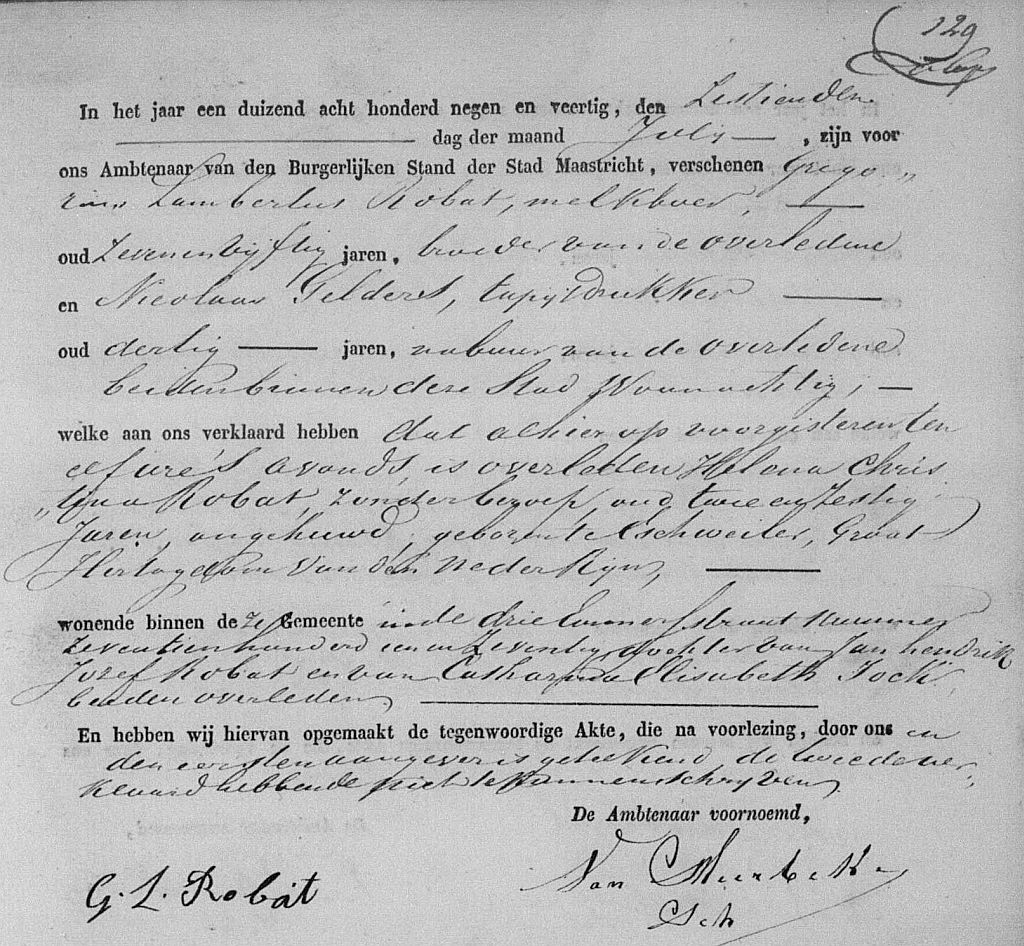 129
In het jaar een duizend acht honderd negen en veertig, den Zestienden
dag der maand Julij, zijn voor
ons Ambtenaar van den Burgerlijken Stand der Stad Maastricht, verschenen Grego„
rius Lambertus Robat, melkboer,
oud Zevenenvijftig jaren, broeder van de overledene
en Nicolaas Gelders, tapijtdrukker
oud dertig jaren, nabuur van de overledene
beiden binnen deze Stad Woonachtig;
welke aan ons verklaard hebben dat alhier op voorgisteren ten
elf ure's avonds, is overleden, Helena Chris
„tina Robat, zonder beroep, oud twee en Zestig
Jaren, ongehuwd, geboren te Eschweiler, Groot
Hertogdom van den Neder Rijn,
wonende binnen deze Gemeente in de drie Emmerstraat Nummer
Zeventienhonderd een en Zeventig, dochter van Jan hendrik
Jozef Robat en van Catharina Elisabeth Jock,
beiden overleden,
En hebben wij hiervan opgemaakt de tegenwoordige Akte, die na voorlezing, door ons en
den eersten aangever is geteekend, de tweede ver„
klaard hebbende niet te kunnen schrijven.
De Ambtenaar voornoemd,
G. L. Robat
Van Meerbeke
Sch